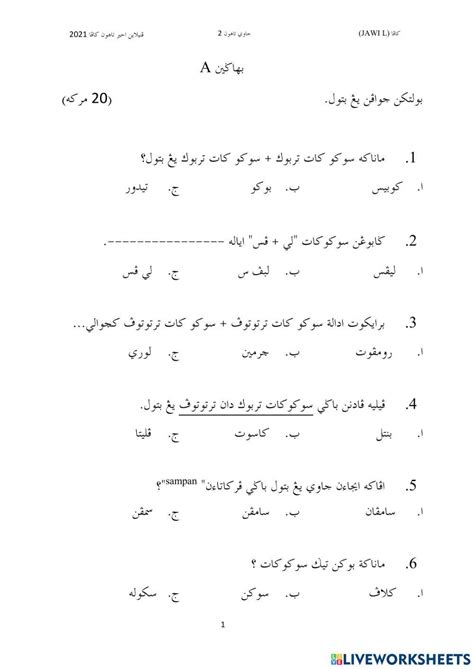 ڤنيلاين اخير تاهون كافا 2021 جاوي تاهون 2 كافا (JAWI L)
بهاڬين A
بولتكن جواڤن يڠ بتول. (20 مركه)
1. ماناكه سوكو كات تربوك + سوكو كات تربوك يڠ بتول؟
ا. كوبيس ب. بوكو ج. تيدور
2. ڬابوڠن سوكوكات "لي + ڤس" اياله ----------------.
ا. ليڤس ب. ليڤ س ج. لي ڤس
3. برايكوت ادالة سوكو كات ترتوتوڤ + سوكو كات ترتوتوڤ كچوالي...
ا. رومڤوت ب. جرمين ج. لوري
4. ڤيليه ڤادنن باڬي سوكوكات تربوك دان ترتوتوڤ يڠ بتول.
ا. بنتل ب. كاسوت ج. ڤليتا
5. اڤاكه ايجاءن جاوي يڠ بتول باڬي ڤركاتاءن" sampan"؟
ا. سامڤان ب. سامڤن ج. سمڤن
6. ماناكة بوكن تيݢ سوكوكات ؟
ا. كلاڤ ب. سوكن ج. سكوله
1
LIVEWORKSHEETS